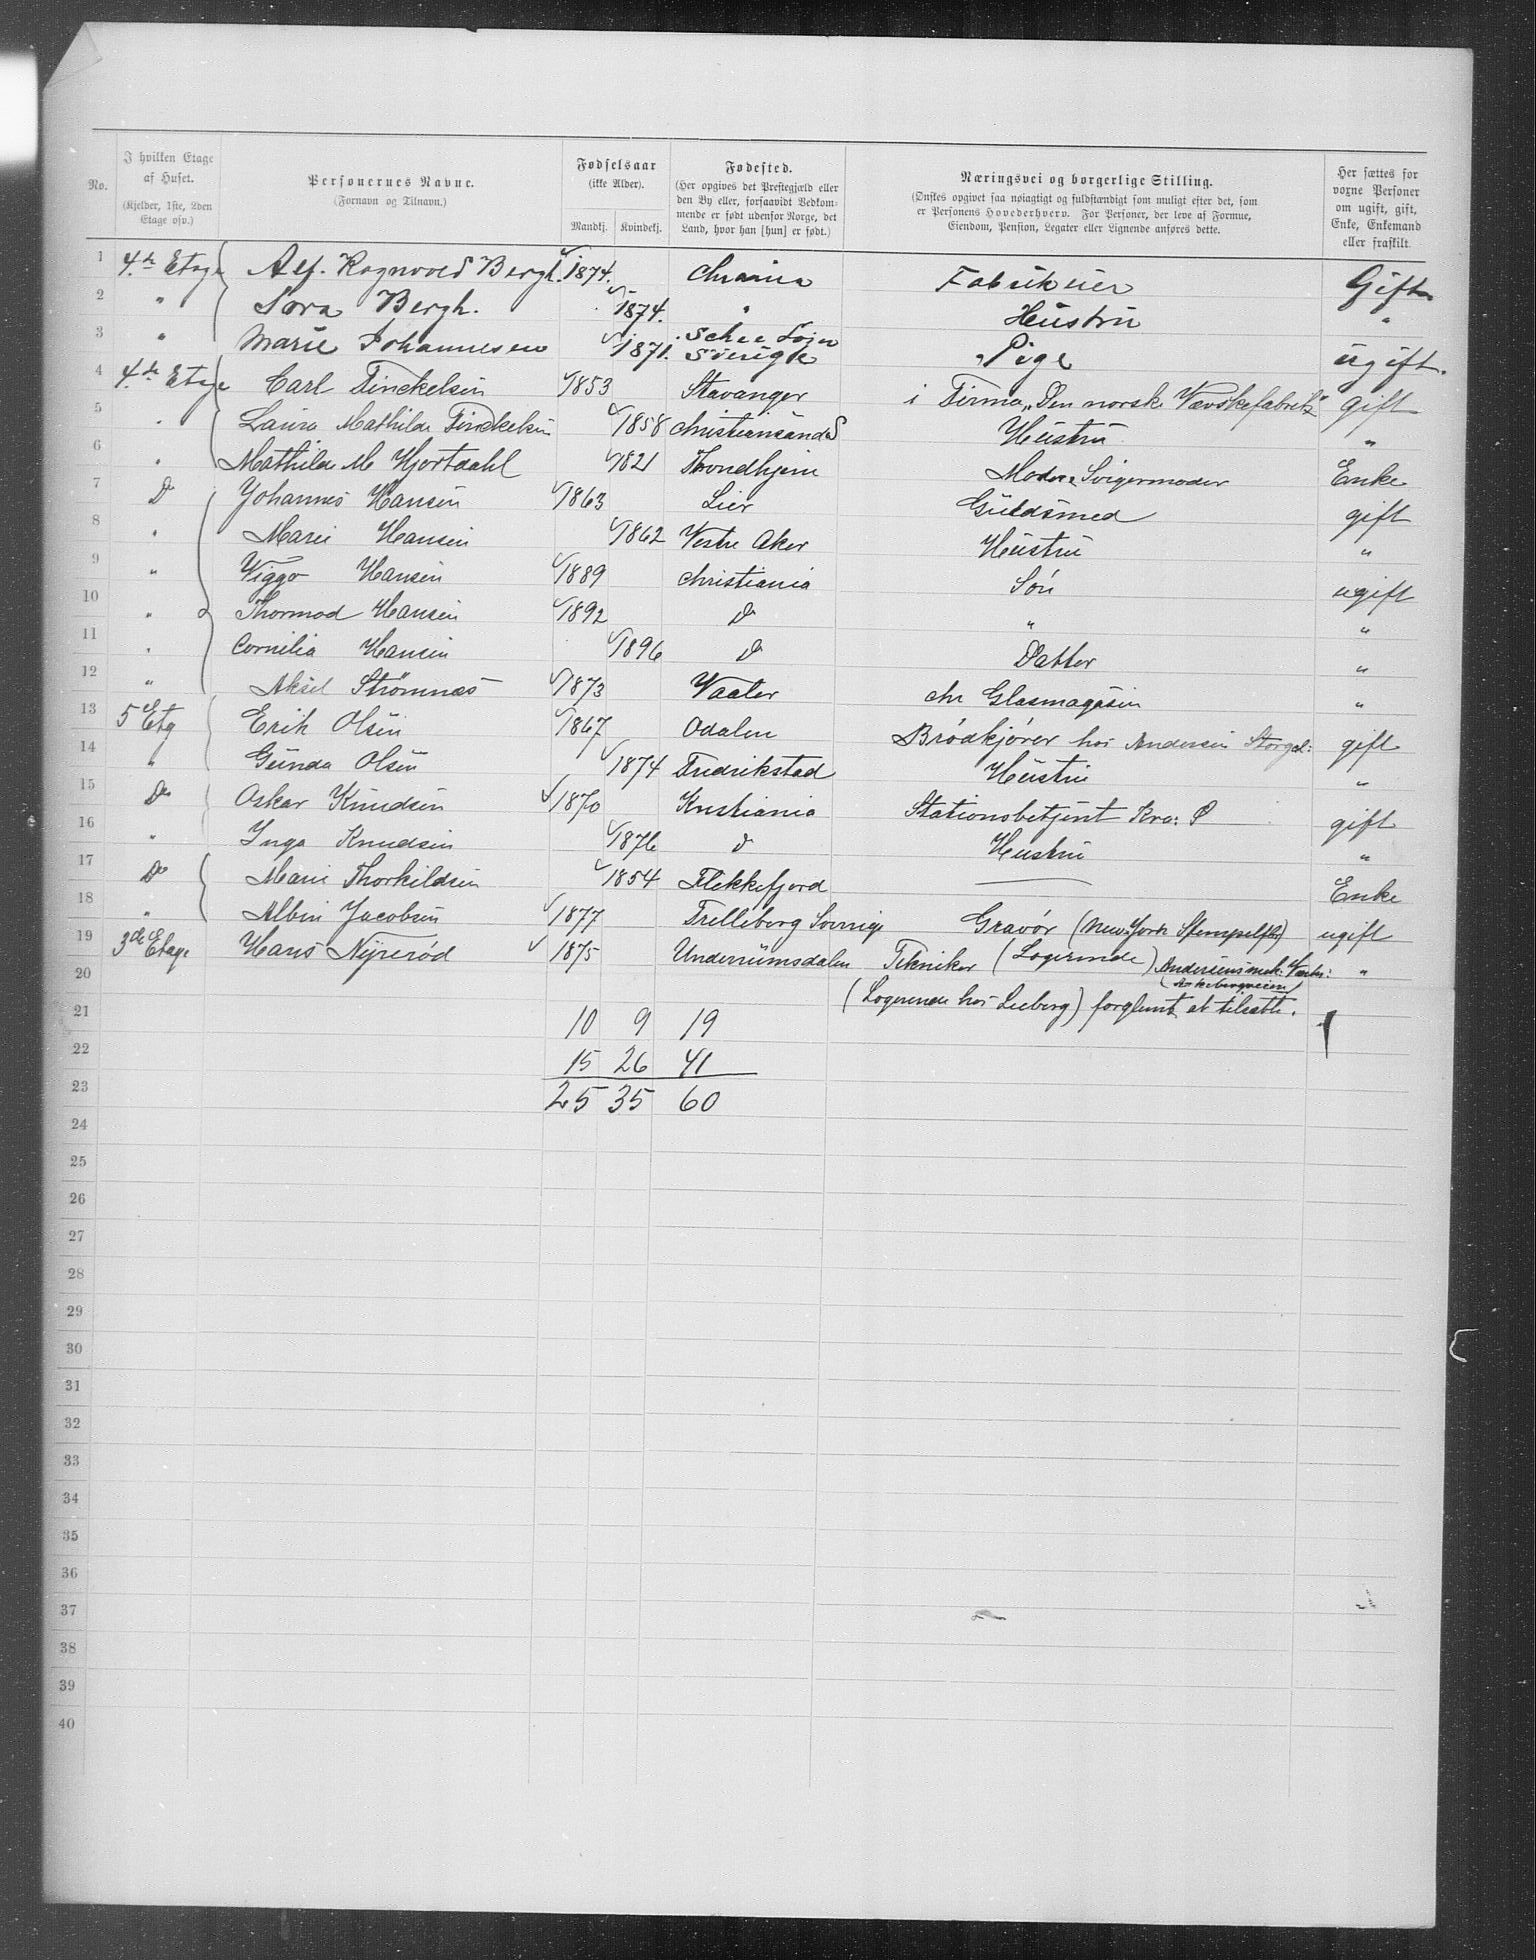 No. | I hvilken Etage af Huset. (Kjelder, 1ste, 2den Etage osv.) | Personernes Navne. (Fornavn og Tilnavn.) | Fødselsaar (ikke Alder). Mandkj. Kvindekj. | Fødested. (Her opgives det Prestegjæld eller den By eller, forsaavidt Vedkommende er født udenfor Norge, det Land, hvor han [hun] er født.) | Næringsvei og borgerlige Stilling. (Ønskes opgivet saa nøiagtigt og fuldstændigt som muligt efter det, som er Personens Hovederhverv. For Personer, der leve af Formue, Eiendom, Pension, Legater eller Lignende anføres dette. | Her sættes for voxne Personer om ugift, gift, Enke, Enkemand eller fraskilt.
1 4. de Etage Alf. Ragnvald Bergh. 1874. Chrania Fabrikeier Gift
2 " Bergh. 1874. " Hustru "
3 " Marie Johannesen 1871. Sverige Pige ugift.
4 4. de Etage Carl Finckelsen 1853 Stavanger i Firma "Den norske Vævskefabrik" gift
5 " Laura Mathilde Finckelsen 1858 Christianssand S Hustru "
6 " Mathilde M Hjortdahl 1821 Trondhjem Moder, Svigermoder Enke
7 Do Johannes Hansen 1863 Lier Guldsmed gift
8 " Marie Hansen 1862 Vestre Aker Hustru "
9 " Viggo Hansen 1889 Christiania Søn ugift
10 " Thormod Hansen 1892 Do " "
11 " Cornilia Hansen 1896 Do Datter "
12 " Aksel Strømnæs 1873 Vaaler Chr Glasmagasin "
13 5 Etg Erik Olsen 1867 Odalen Brødkjører hos Andersen Storgd: gift
14 " Gunda Olsen 1874 Fredrikstad Hustru "
15 Do Oskar Knudsen 1870 Kristiania Stationsbetjent Kra: Ø gift
16 " Inga Knudsen 1876 Do Hustru "
17 Do Marie Thorkildsen 1854 Flekkefjord — Enke
18 " Albin Jacobsen 1877 Trelleborg Sverrige Gravør (New-York Stempelfb) ugift
19 3de Etage Hans Nyrerød 1875 Underrumsdalen Tekniker (Logerende) Andersens mek: Værks: "
20 (Logerende hos Lieberg) forglemt at tilsætte.
21 10 9 19
22 15 26 41
23 25 35 60
24
25
26
27
28
29
30
31
32
33
34
35
36
37
38
39
40